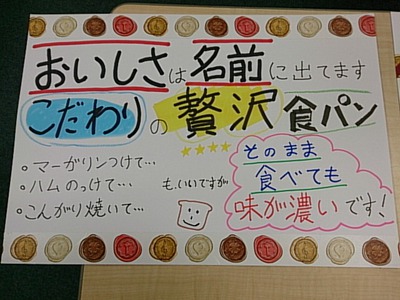 おいしさは名前に出てます
こだわりの贅沢食パン
。マーガリンつけて…
。ハムのっけて…
。こんがり焼いて…
も、いいですが
そのまま
食べても
味が濃いです!